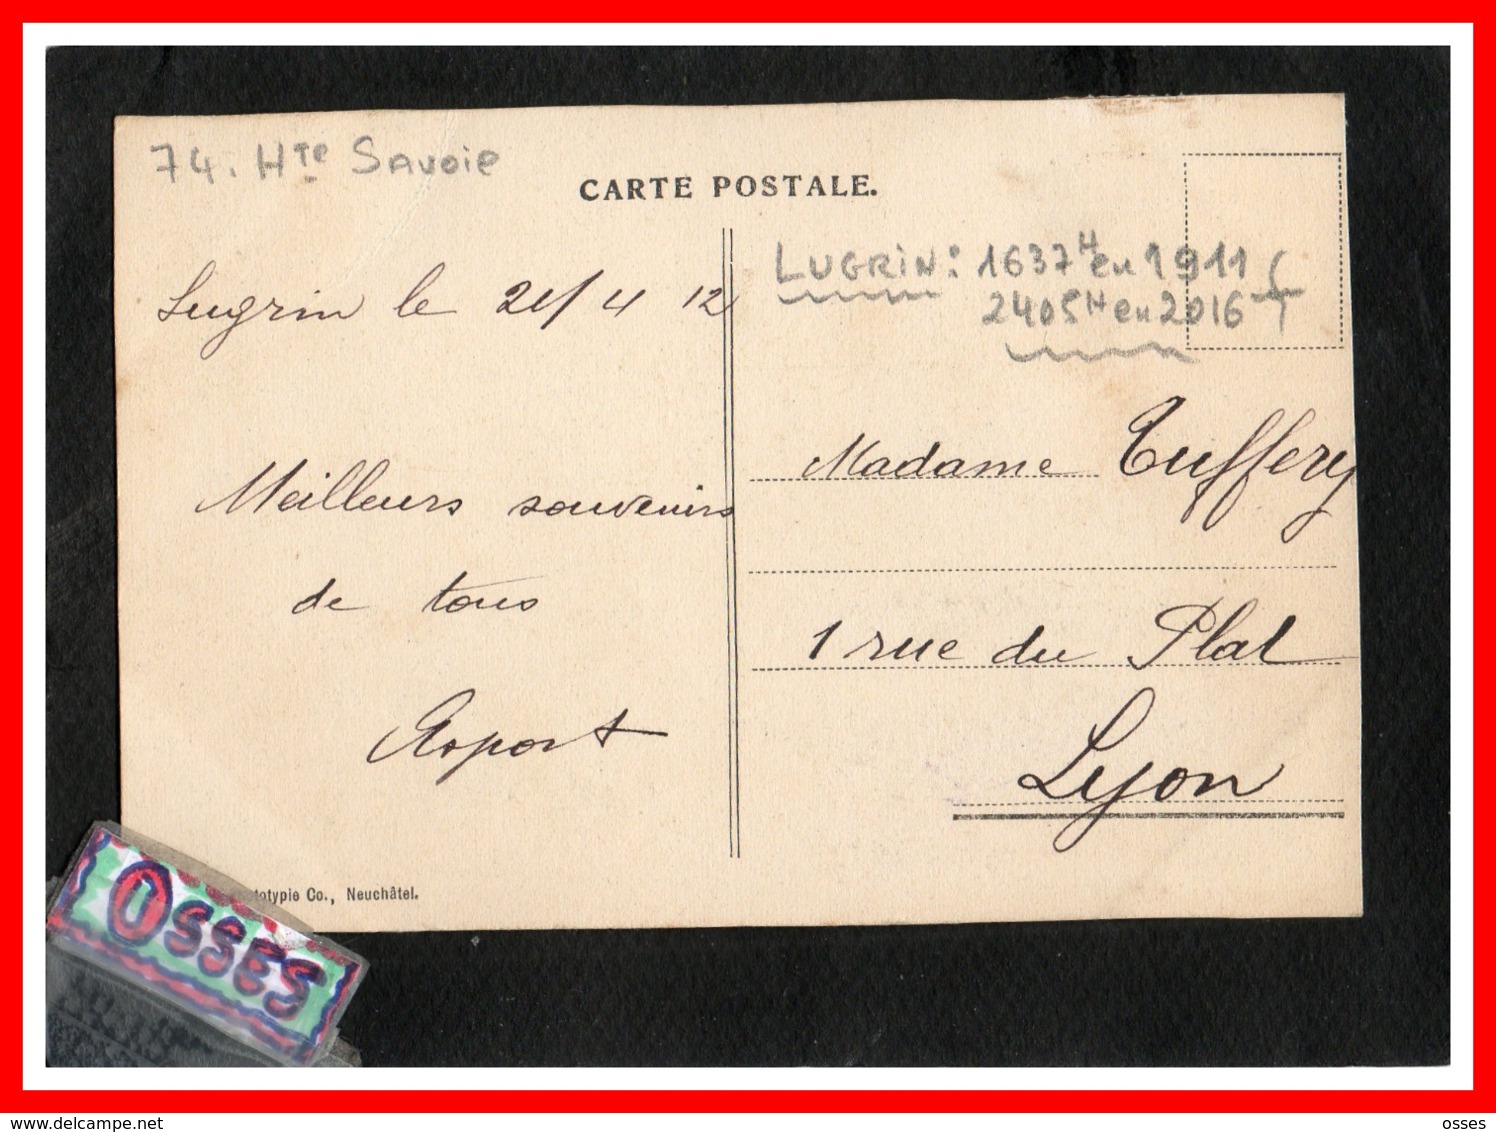 74. Hte Savoie
CARTE POSTALE.
LUGRIN: 1637H en 1911
2405H en 2016
Lugrin le 21/4 12
Madame Tuffery
Meilleurs souvenirs
de tous
1 rue du Plat
Lyon
totypie Co., Neuchâtel.
OSSES
www.delcampe.net
osses